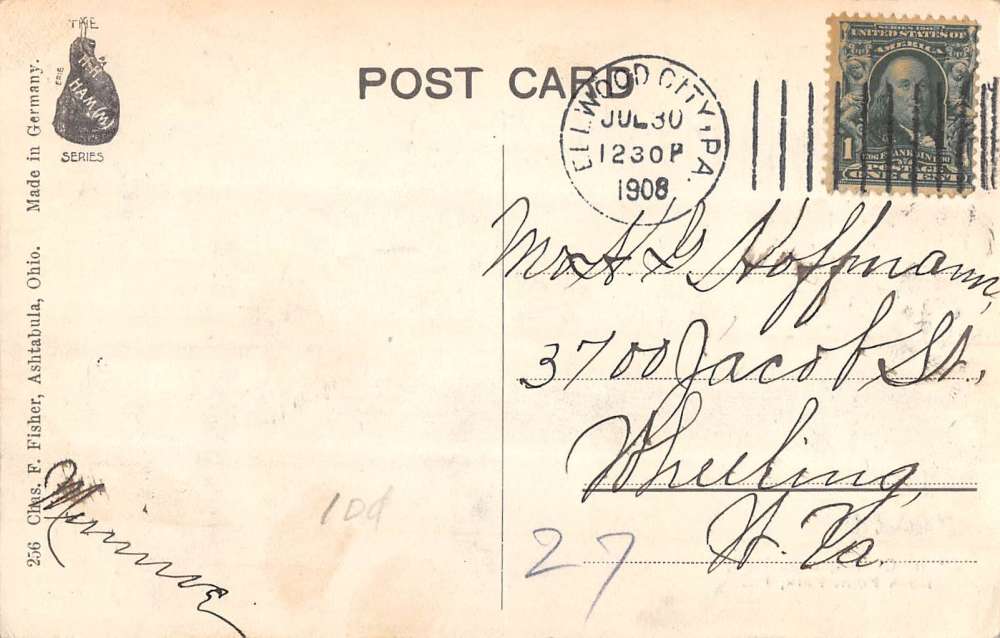 THE
ERIE
HAM(M)
SERIES
256 Chas. F. Fisher, Ashtabula, Ohio. Made in Germany.
POST CARD
ELLWOOD CITY, PA.
JUL 30
1230 P
1908
SERIES 1902
UNITED STATES OF
AMERICA
1
FRANKLIN
POSTAGE
ONE CENT
Mrs H. G Hoffmann,
3700 Jacob St.,
Wheeling,
W. Va.
10¢
27